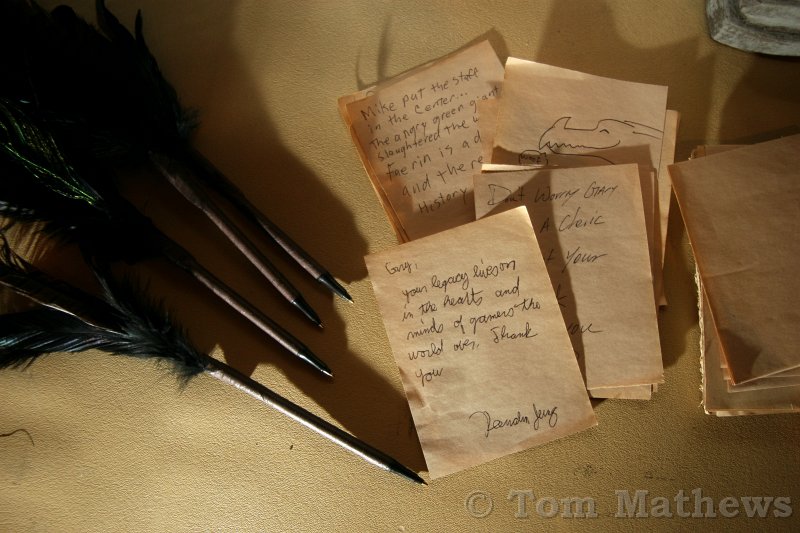 Mike put the staff
in the Center...
The angry green giant
slaughtered the
Faerin is a
and the re
History
Don't Worry Gary
A Cleric
t Your
k
ou
Gary,
your legacy lives on
in the hearts and
minds of gamers the
world over. Thank
you
© Tom Mathews